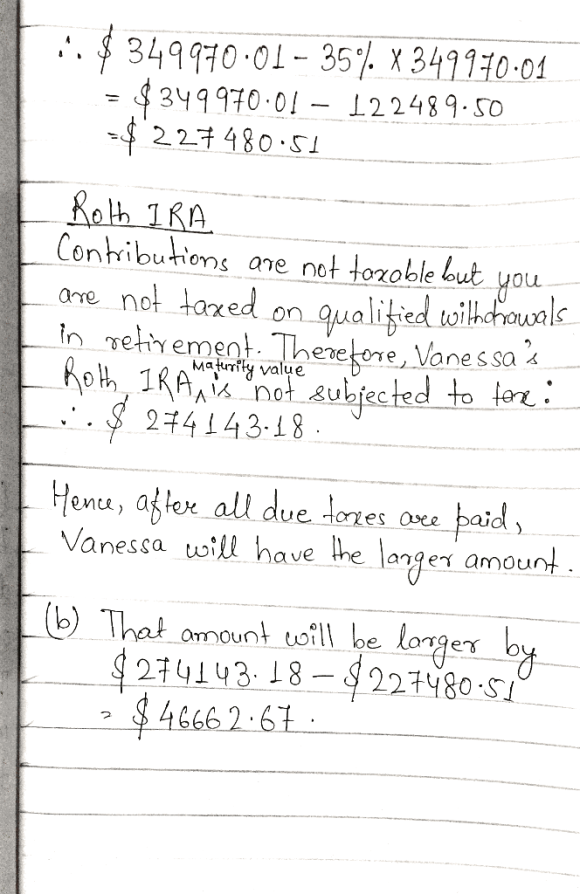 ∴ $ 349970.01 - 35% X 349970.01
= $ 349970.01 - 122489.50
= $ 227480.51
Roth IRA
Contributions are not taxable but you
are not taxed on qualified withdrawals
in retirement. Therefore, Vanessa's
Roth IRA Maturity value is not subjected to tax :
∴ $ 274143.18 .
Hence, after all due taxes are paid,
Vanessa will have the larger amount .
(b) That amount will be larger by
$ 274143.18 - $ 227480.51
= $ 46662.67 .